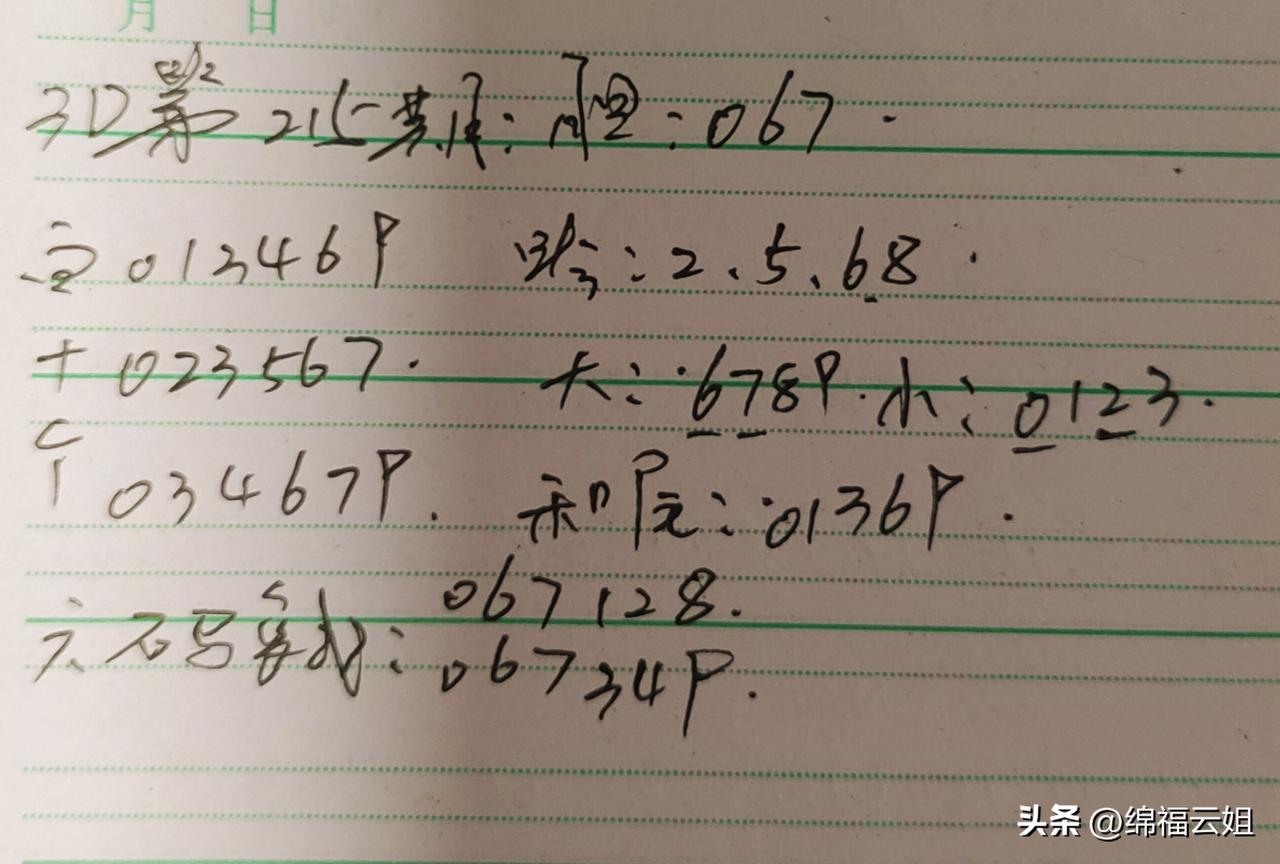 月 日
3D第215期: 胆: 067.
百 013469 跨: 2、5、68.
十 023567. 大: 6789. 小: 0123.
个 034679. 和尾: 01369.
六码组: 067128.
067349.
头条 @绵福云姐